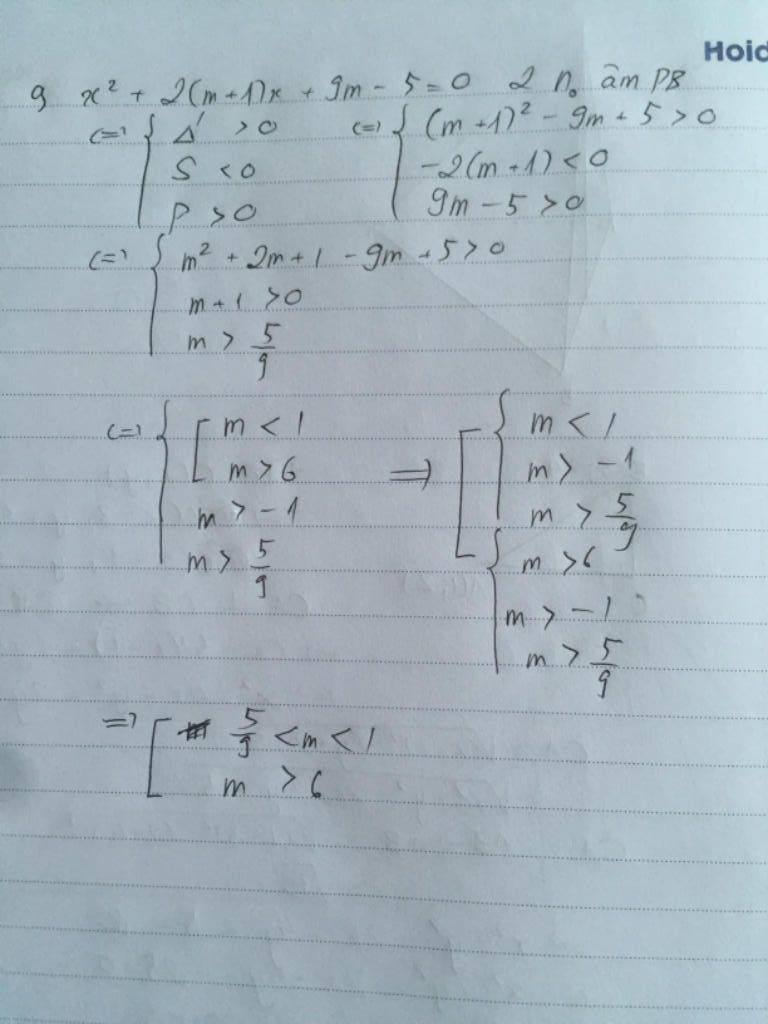 Hoid
9 x² + 2(m+1)x + 9m - 5 = 0 2 n₀ âm PB
<=> { Δ' > 0 <=> { (m+1)² - 9m + 5 > 0
S < 0 -2(m+1) < 0
P > 0 9m - 5 > 0
<=> { m² + 2m + 1 - 9m + 5 > 0
m + 1 > 0
m > 5/9
<=> { [ m < 1 => [ { m < 1
m > 6 m > -1
m > -1 m > 5/9
m > 5/9 { m > 6
m > -1
m > 5/9
=> [ 5/9 < m < 1
m > 6